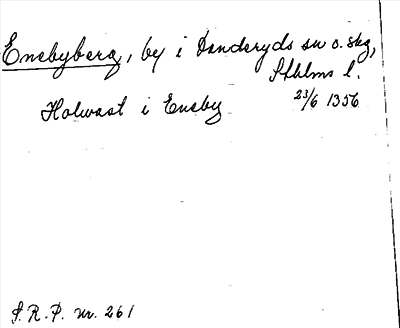 Enebyberg, by i Danderyds sn o. skg,
Sthlms l.
Holwast i Eneby 23/6 1356
S.R.P. nr. 261